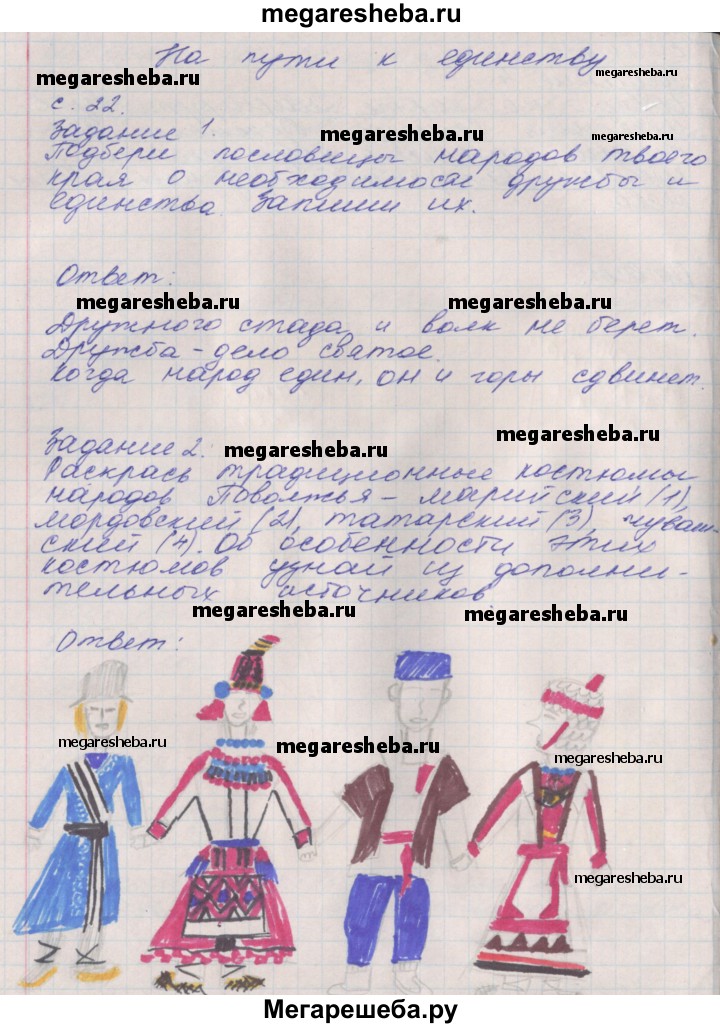 megaresheba.ru
На пути к единству
megaresheba.ru
megaresheba.ru
с. 22.
Задание 1.
megaresheba.ru
megaresheba.ru
Подбери пословицы народов твоего
края о необходимости дружбы и
единства. Запиши их.
Ответ:
megaresheba.ru
megaresheba.ru
Дружного стада и волк не берет.
Дружба - дело святое.
Когда народ един, он и горы сдвинет.
Задание 2.
megaresheba.ru
megaresheba.ru
Раскрась традиционные костюмы
народов Поволжья - марийский (1),
мордовский (2), татарский (3), чуваш-
ский (4). Об особенности этих
костюмов узнай из дополни-
тельных источников.
megaresheba.ru
megaresheba.ru
Ответ:
megaresheba.ru
megaresheba.ru
megaresheba.ru
megaresheba.ru
megaresheba.ru
Мегарешеба.ру